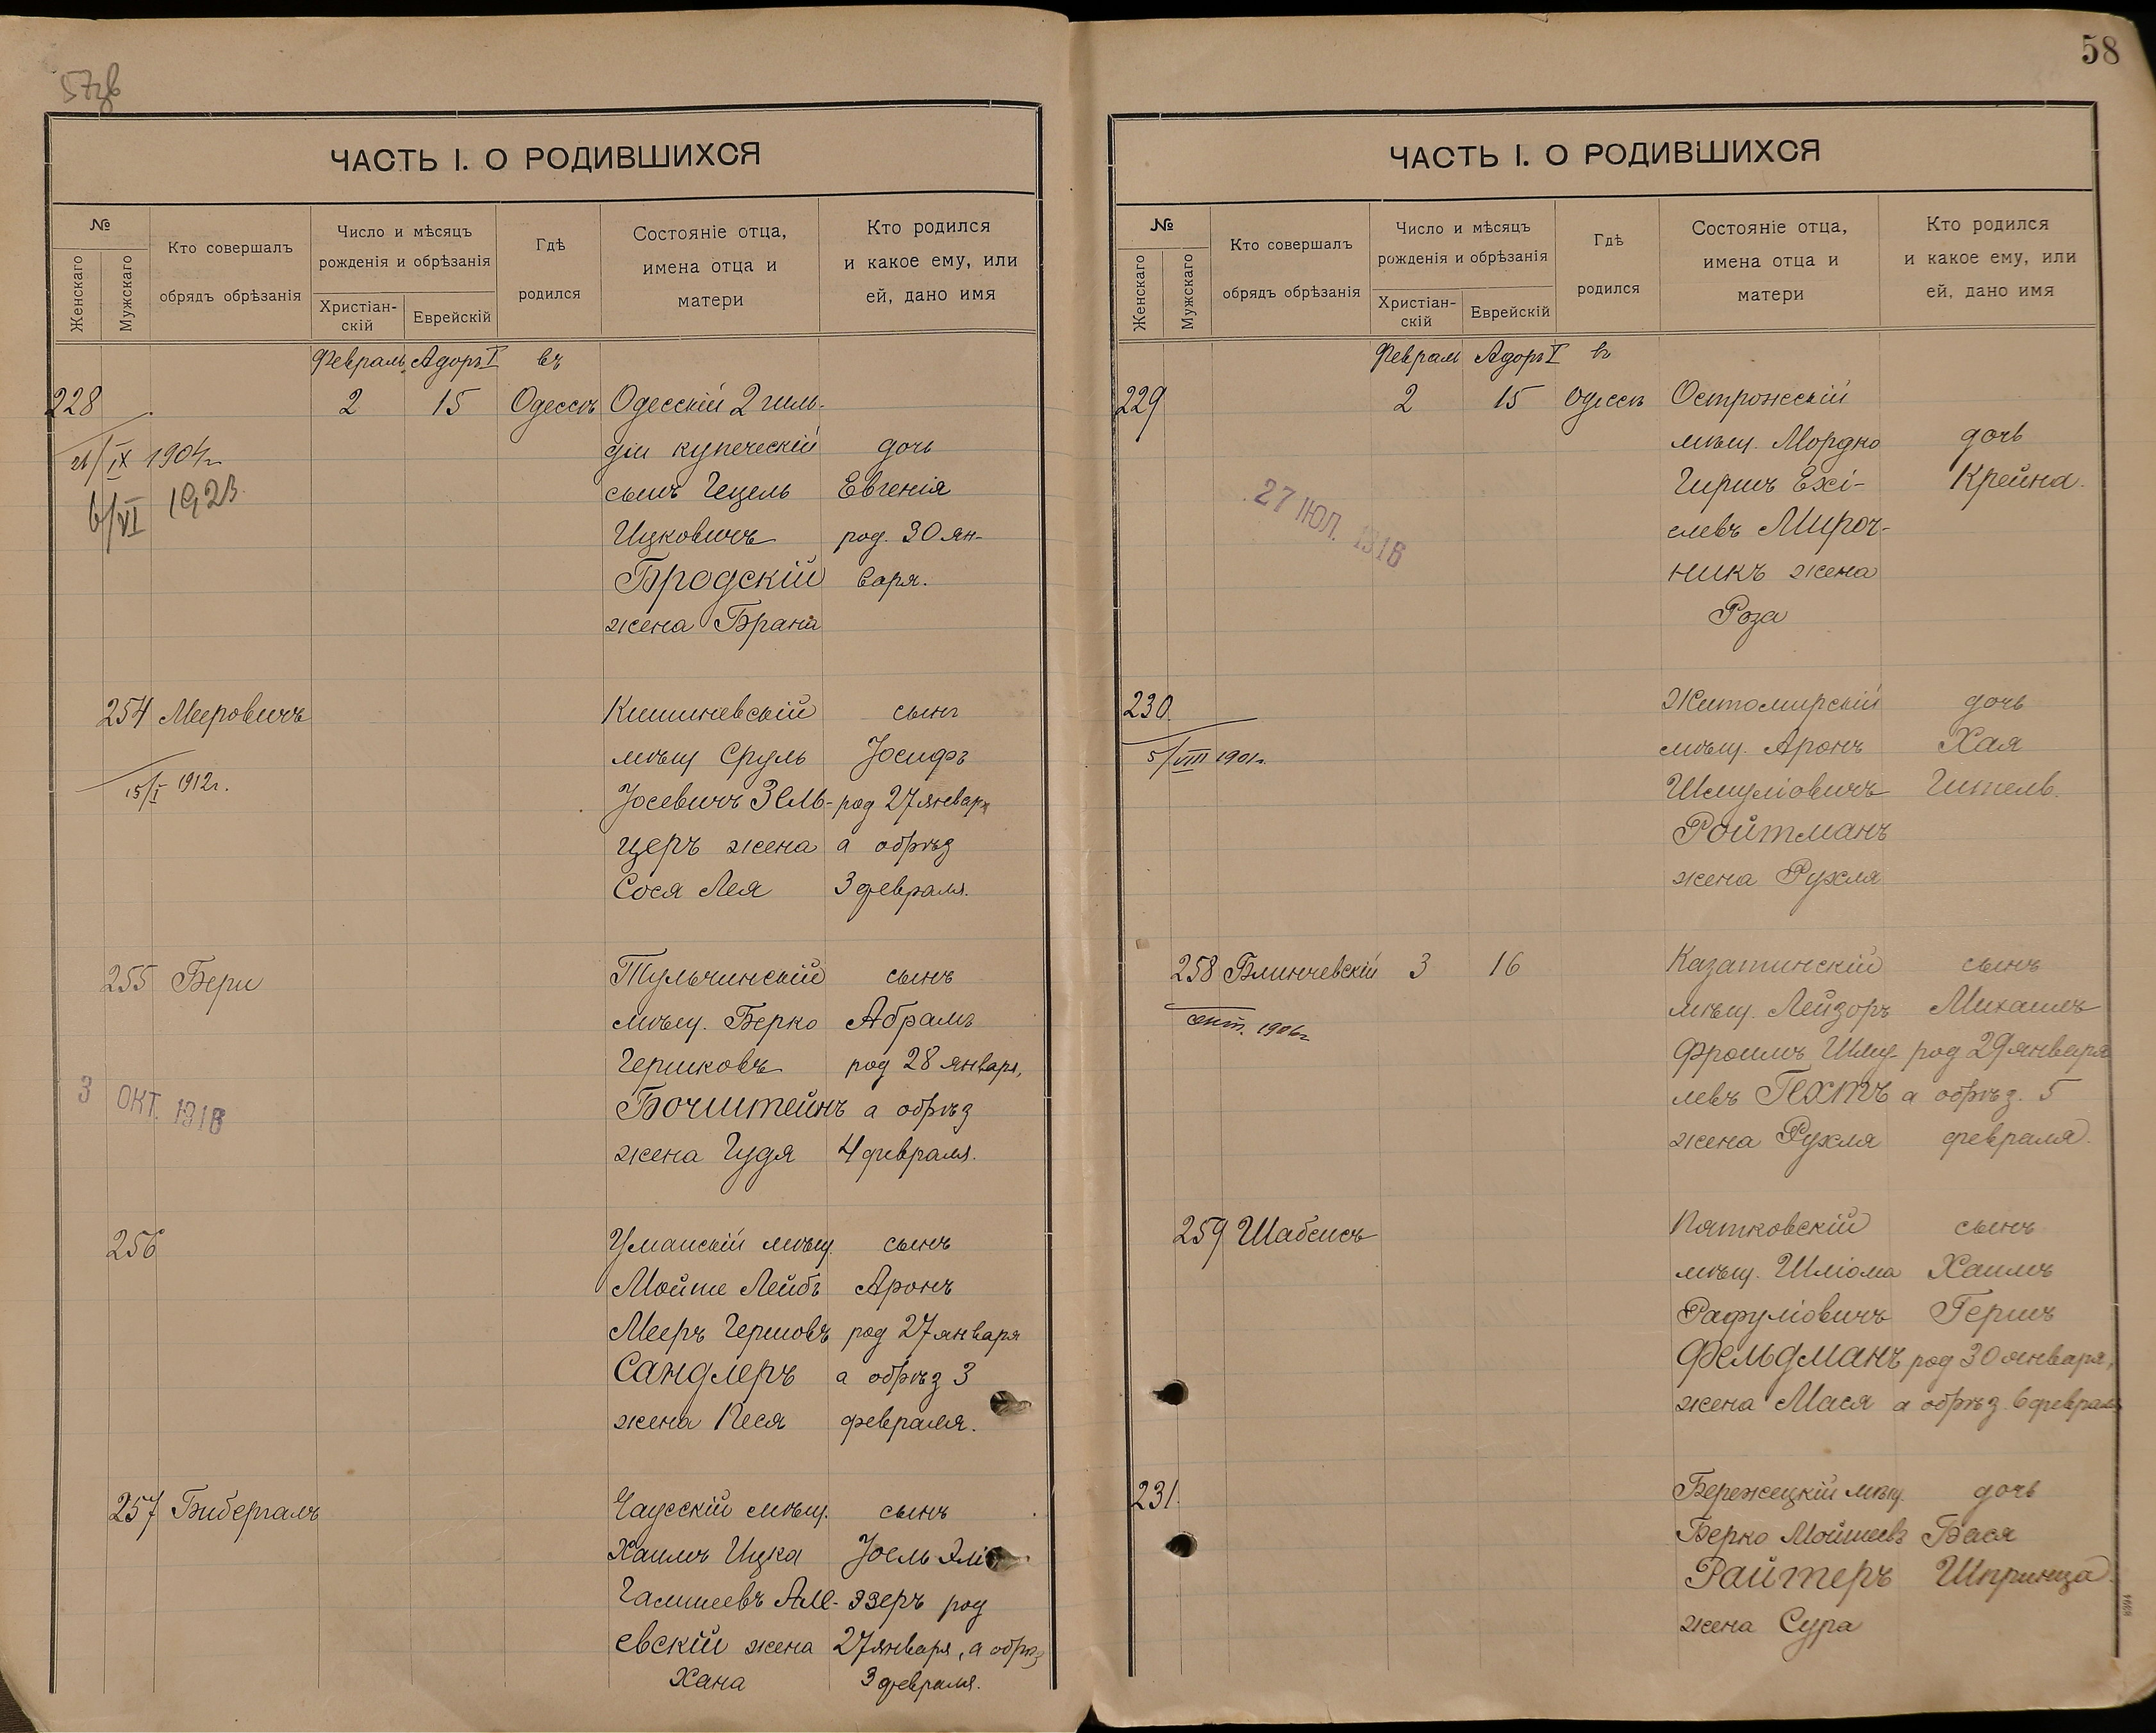 57об
ЧАСТЬ I. О РОДИВШИХСЯ
№
Женскаго
Мужскаго
Кто совершалъ
обрядъ обрѣзанія
Число и мѣсяцъ
рожденія и обрѣзанія
Христіан-
скій
Еврейскій
Гдѣ
родился
Состояніе отца,
имена отца и
матери
Кто родился
и какое ему, или
ей, дано имя
Февраль Адоръ I въ
228 2 15 Одессѣ Одесскій 2 гиль-
діи купеческій дочь
21/IX 1904г.
сынъ Гецель Евгенія
6/VI 1923
Ицковичъ род. 30 ян-
Бродскій варя.
жена Брана
254 Мееровичъ Кишиневскій сынъ
мѣщ Сруль Іосифъ
15/I 1912г.
Іосевичъ Зель- род 27 января
церъ жена а обрѣз
Сося Лея 3 февраля.
255 Бери Тульчинскій сынъ
мѣщ. Берко Абрамъ
Гершковъ род 28 января,
3 ОКТ. 1916
Бочштейнъ а обрѣз
жена Гудя 4 февраля.
256 Уманскій мѣщ. сынъ
Мойше Лейбъ Аронъ
Мееръ Гершовъ род 27 января
Сандлеръ а обрѣз 3
жена Песя февраля.
257 Бибергалъ Чаусскій мѣщ. сынъ
Хаимъ Ицка Іоель Элі
Галишеевъ Але- эзеръ род
евскій жена 27 января, а обрѣз
Хана 3 февраля.
58
ЧАСТЬ I. О РОДИВШИХСЯ
№
Женскаго
Мужскаго
Кто совершалъ
обрядъ обрѣзанія
Число и мѣсяцъ
рожденія и обрѣзанія
Христіан-
скій
Еврейскій
Гдѣ
родился
Состояніе отца,
имена отца и
матери
Кто родился
и какое ему, или
ей, дано имя
Феврал Адоръ I въ
229 2 15 Одессѣ Острожскій
мѣщ. Мордко дочь
Гиршъ Ехі- Крейна.
27 ІЮЛ. 1916
елевъ Мироч-
никъ жена
Роза
230. Житомирскій дочь
мѣщ. Аронъ Хая
5/VIII 1901г.
Шмуліовичъ Гитель.
Ройтманъ
жена Рухля
258 Блинчевскій 3 16 Казатинскій сынъ
мѣщ. Лейзоръ Михаилъ
сент. 1906г
Фроимъ Шму- род 29 января
левъ Гехтъ а обрѣз. 5
жена Рухля февраля.
259 Шабсисъ Пятковскій сынъ
мѣщ. Шліома Хаимъ
Рафуліовичъ Гершъ
Фельдманъ род 30 января,
жена Мася а обрѣз. 6 феврал
231. Бережецкій мѣщ. дочь
Берко Мойшевъ Бася
Райтеръ Шпринца.
жена Сура